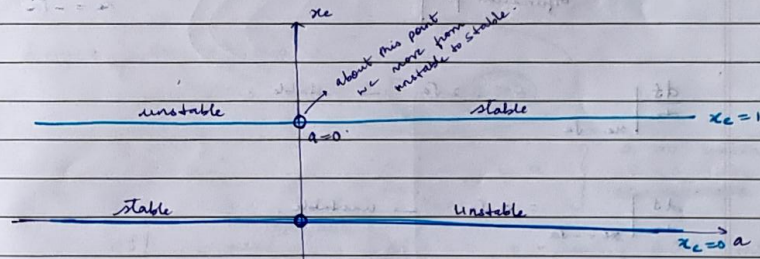 xe
about this point
we move from
unstable to stable.
unstable
stable
xe = 1
a=0.
stable
Unstable
xe=0 a